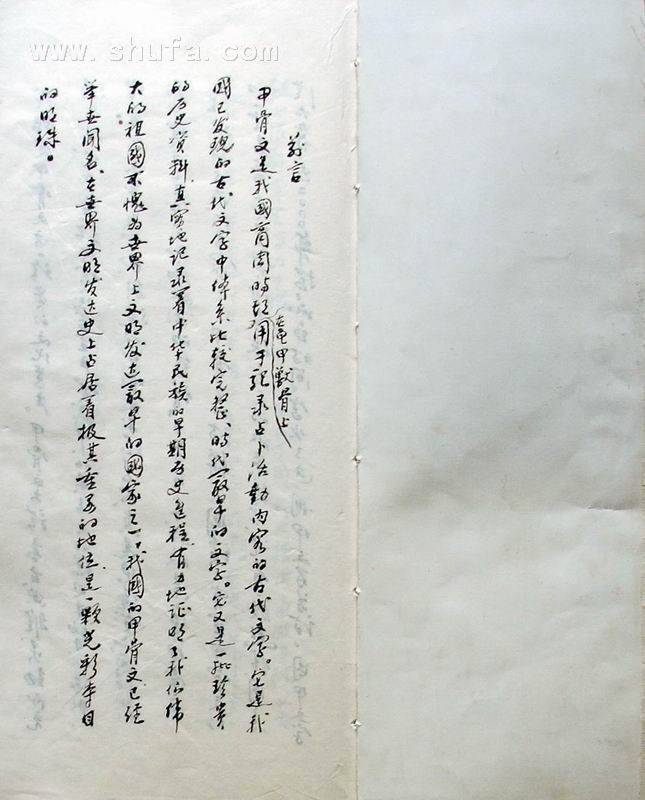 www.shufa.com
前言
甲骨文是我國商周時期用于記录占卜活動内容的古代文字。它是我
在龟甲獸骨上
國已发現的古代文字中体系比较完整、時代最早的文字。它又是一批珍贵
的历史资料，真实地记录着中华民族的早期历史進程，有力地证明了我们偉
大的祖國不愧为世界上文明发达最早的國家之一。我國的甲骨文已经
举世闻名，在世界文明发达史上占居着极其重要的地位，是一颗光彩夺目
的明珠。